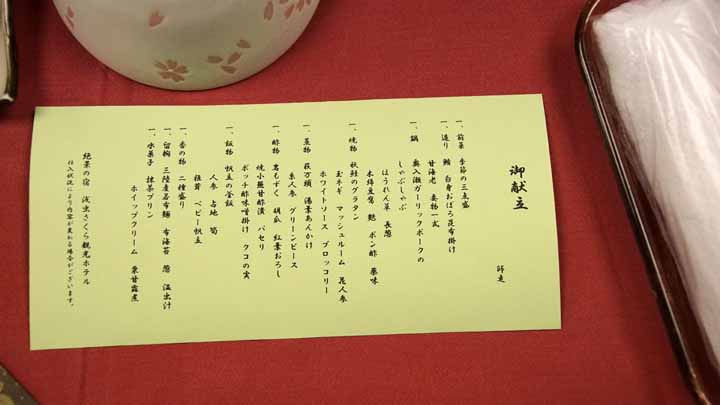 御献立
師走
一、前菜 季節の三点盛
一、造り 鮪 白身おぼろ昆布掛け
甘海老 妻物一式
一、鍋 奥入瀬ガーリックポークの
しゃぶしゃぶ
ほうれん草 長葱
木綿豆腐 麩 ポン酢 薬味
一、焼物 秋鮭のグラタン
玉ネギ マッシュルーム 花人参
ホワイトソース ブロッコリー
一、蒸物 萩万頭 湯葉あんかけ
糸人参 グリーンピース
一、酢物 岩もずく 胡瓜 紅葉おろし
焼小鰭甘酢漬 パセリ
ポッチ酢味噌掛け クコの実
一、飯物 帆立の釜飯
人参 占地 筍
椎茸 ベビー帆立
一、香の物 二種盛り
一、留椀 三陸産若布麺 布海苔 葱 温出汁
一、水菓子 抹茶プリン
ホイップクリーム 栗甘露煮
絶景の宿 浅虫さくら観光ホテル
仕入状況により内容が変わる場合がございます。